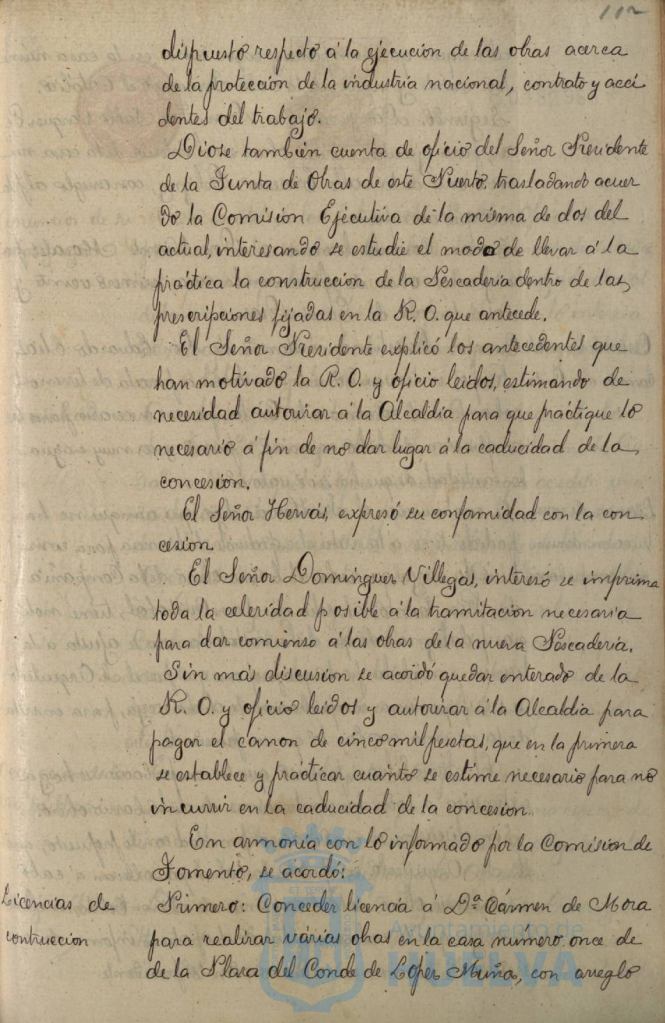 112
dispuesto respecto á la ejecución de las obras acerca
de la protección de la industria nacional, contrato y acci
dentes del trabajo.
Diose también cuenta de oficio del Señor Presidente
de la Junta de Obras de este Puerto, trasladando acuer
do la Comisión Ejecutiva de la misma de dos del
actual, interesando se estudie el modo de llevar á la
práctica la construcción de la Pescadería dentro de las
prescripciones fijadas en la R. O. que antecede.
El Señor Presidente explicó los antecedentes que
han motivado la R. O. y oficio leidos, estimando de
necesidad autorizar á la Alcaldia para que practique lo
necesario á fin de no dar lugar á la caducidad de la
concesion.
El Señor Hervás, expresó su conformidad con la con
cesion
El Señor Dominguez Villegas, interesó se imprima
toda la celeridad posible á la tramitación necesaria
para dar comienso á las obras de la nueva Pescadería.
Sin más discusion se acordó quedar enterado de la
R. O. y oficio leidos y autorizar á la Alcaldia para
pagar el canon de cinco mil pesetas, que en la primera
se establece y practicar cuanto se estime necesario para no
incurrir en la caducidad de la concesion
En armonía con lo informado por la Comision de
Fomento, se acordó:
Licencias de
contruccion
Primero: Conceder licencia á Dª Cármen de Mora
para realizar várias obras en la casa número once de
de la Plaza del Conde de López Muñoz, con arreglo
Ayuntamiento de
HUELVA